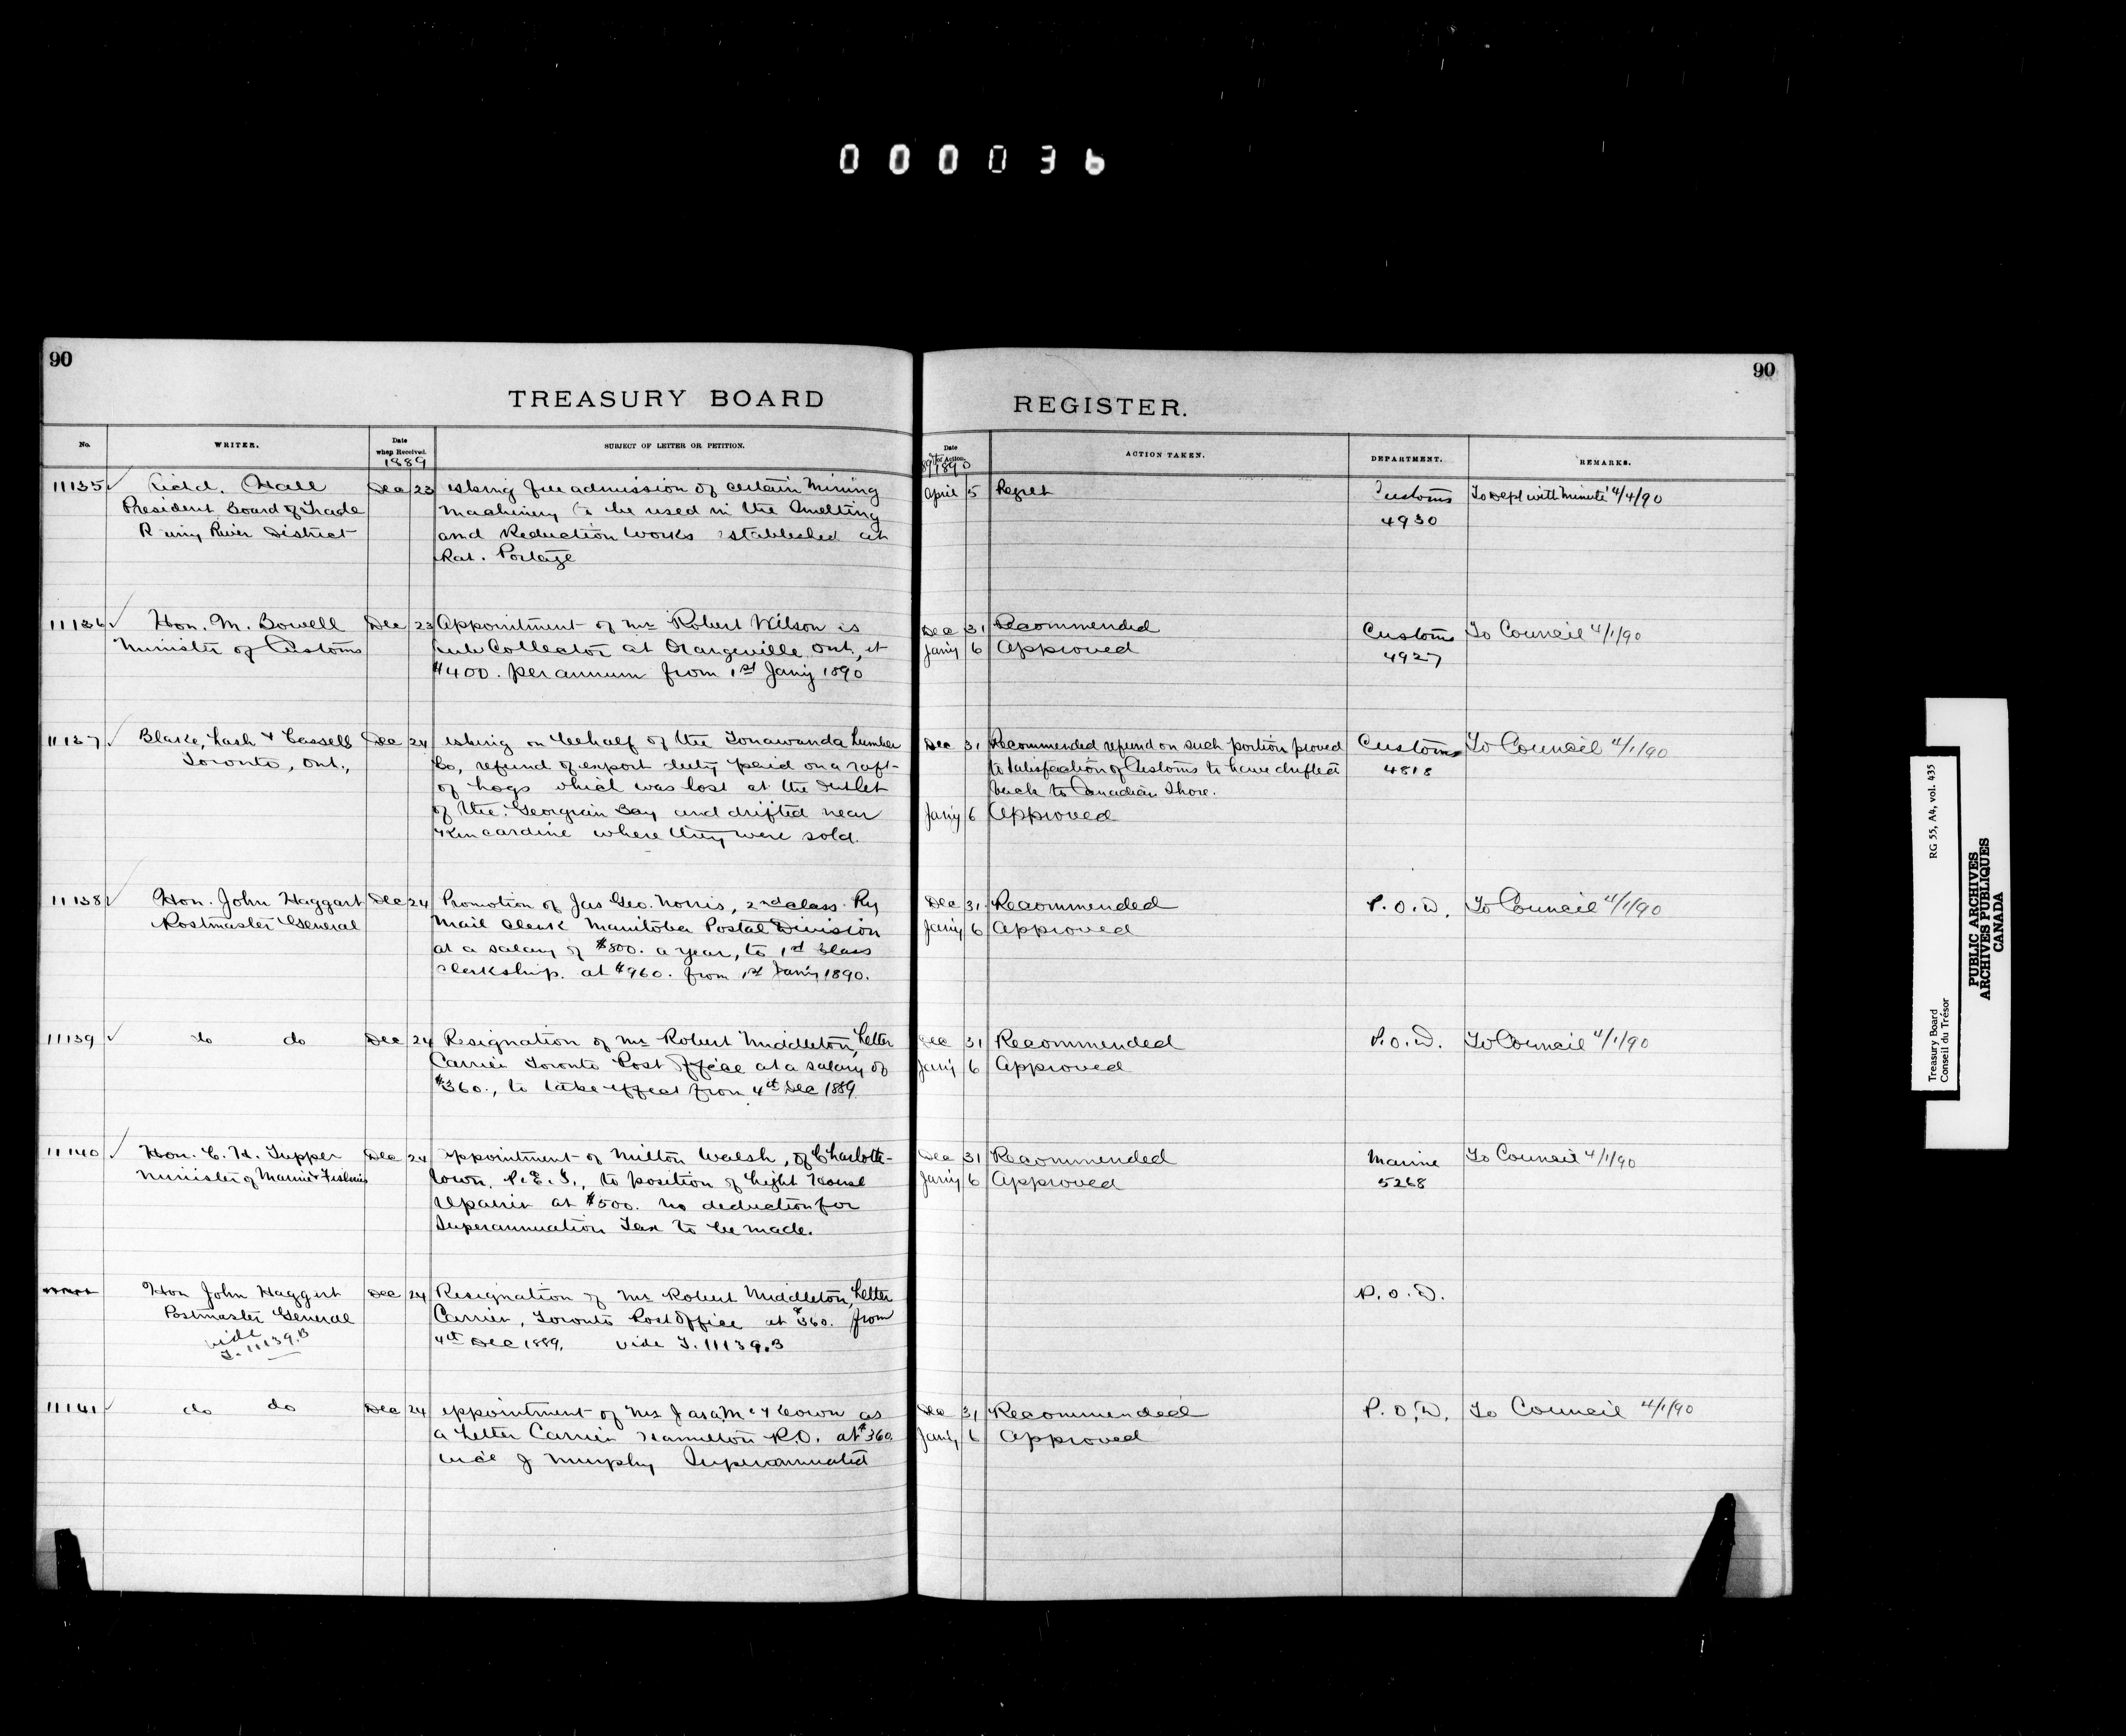 000036
90
90
TREASURY BOARD
REGISTER.
No.
WRITER.
Date when Received.
1889
SUBJECT OF LETTER OR PETITION.
Date of Action
1890
ACTION TAKEN.
DEPARTMENT.
REMARKS.
11135
Hall
President Board of Trade
Rainy River District
Dec 23
asking free admission of certain Mining
Machinery to be used in the Smelting
and Reduction Works established at
Rat. Portage
April 5
Regret
Customs
4930
To Dept with Minute 4/4/90
11136
Hon. M. Bowell
Minister of Customs
Dec 23
Appointment of Mr Robert Wilson as
Sub Collector at Orangeville Ont, at
$400. per annum from 1st Jan'y 1890
Dec 31 Recommended
Jan'y 6 Approved
Customs
4927
To Council 4/1/90
11137
Blake, Lash & Cassels
Toronto, Ont.,
Dec 24
asking on behalf of the Tonawanda Lumber
Co, refund of export duty paid on a raft
of logs which was lost at the outlet
of the Georgian Bay and drifted near
Kincardine where they were sold.
Dec 31 Recommended refund on such portion proved
to satisfaction of Customs to have drifted
back to Canadian Shore.
Jan'y 6 Approved
Customs
4818
To Council 4/1/90
11138
Hon. John Haggart
Postmaster General
Dec 24
Promotion of Jas Geo. Norris, 2nd class Ry
Mail Clerk Manitoba Postal Division
at a salary of $800. a year, to 1st Class
Clerkship. at $960. from 1st Jan'y 1890.
Dec 31 Recommended
Jan'y 6 Approved
P.O.D.
To Council 4/1/90
11139
do do
Dec 24
Resignation of Mr Robert Middleton, Letter
Carrier Toronto Post Office at a salary of
$360., to take effect from 4th Dec 1889
Dec 31 Recommended
Jan'y 6 Approved
P.O.D.
To Council 4/1/90
11140
Hon. C. H. Tupper
Minister of Marine & Fisheries
Dec 24
Appointment of Milton Walsh, of Charlotte-
town, P.E.I., to position of Light House
Repairer at $500. no deduction for
Superannuation Tax to be made.
Dec 31 Recommended
Jan'y 6 Approved
Marine
5268
To Council 4/1/90
Hon John Haggart
Postmaster General
vide
T. 11139.B
Dec 24
Resignation of Mr Robert Middleton, Letter
Carrier, Toronto Post Office at $360. from
4th Dec 1889. vide T. 11139.B
P.O.D.
11141
do do
Dec 24
appointment of Mr as
a Letter Carrier Hamilton P.O. at $360
vice J Murphy Superannuated
Dec 31 Recommended
Jan'y 6 Approved
P.O.D.
To Council 4/1/90
Treasury Board
Conseil du Trésor
RG 55, A4, vol. 435
PUBLIC ARCHIVES
ARCHIVES PUBLIQUES
CANADA